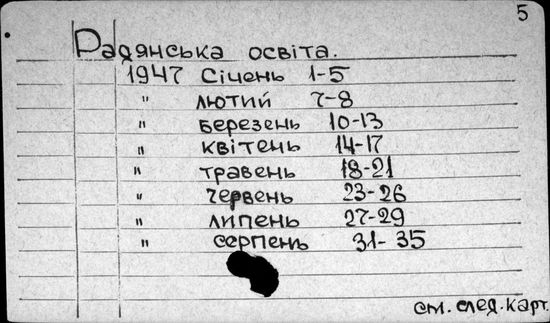 5
Радянська освіта.
1947 Січень 1-5
" лютий 7-8
" березень 10-13
" квітень 14-17
" травень 18-21
" червень 23-26
" липень 27-29
" серпень 31-35
см. след. карт.